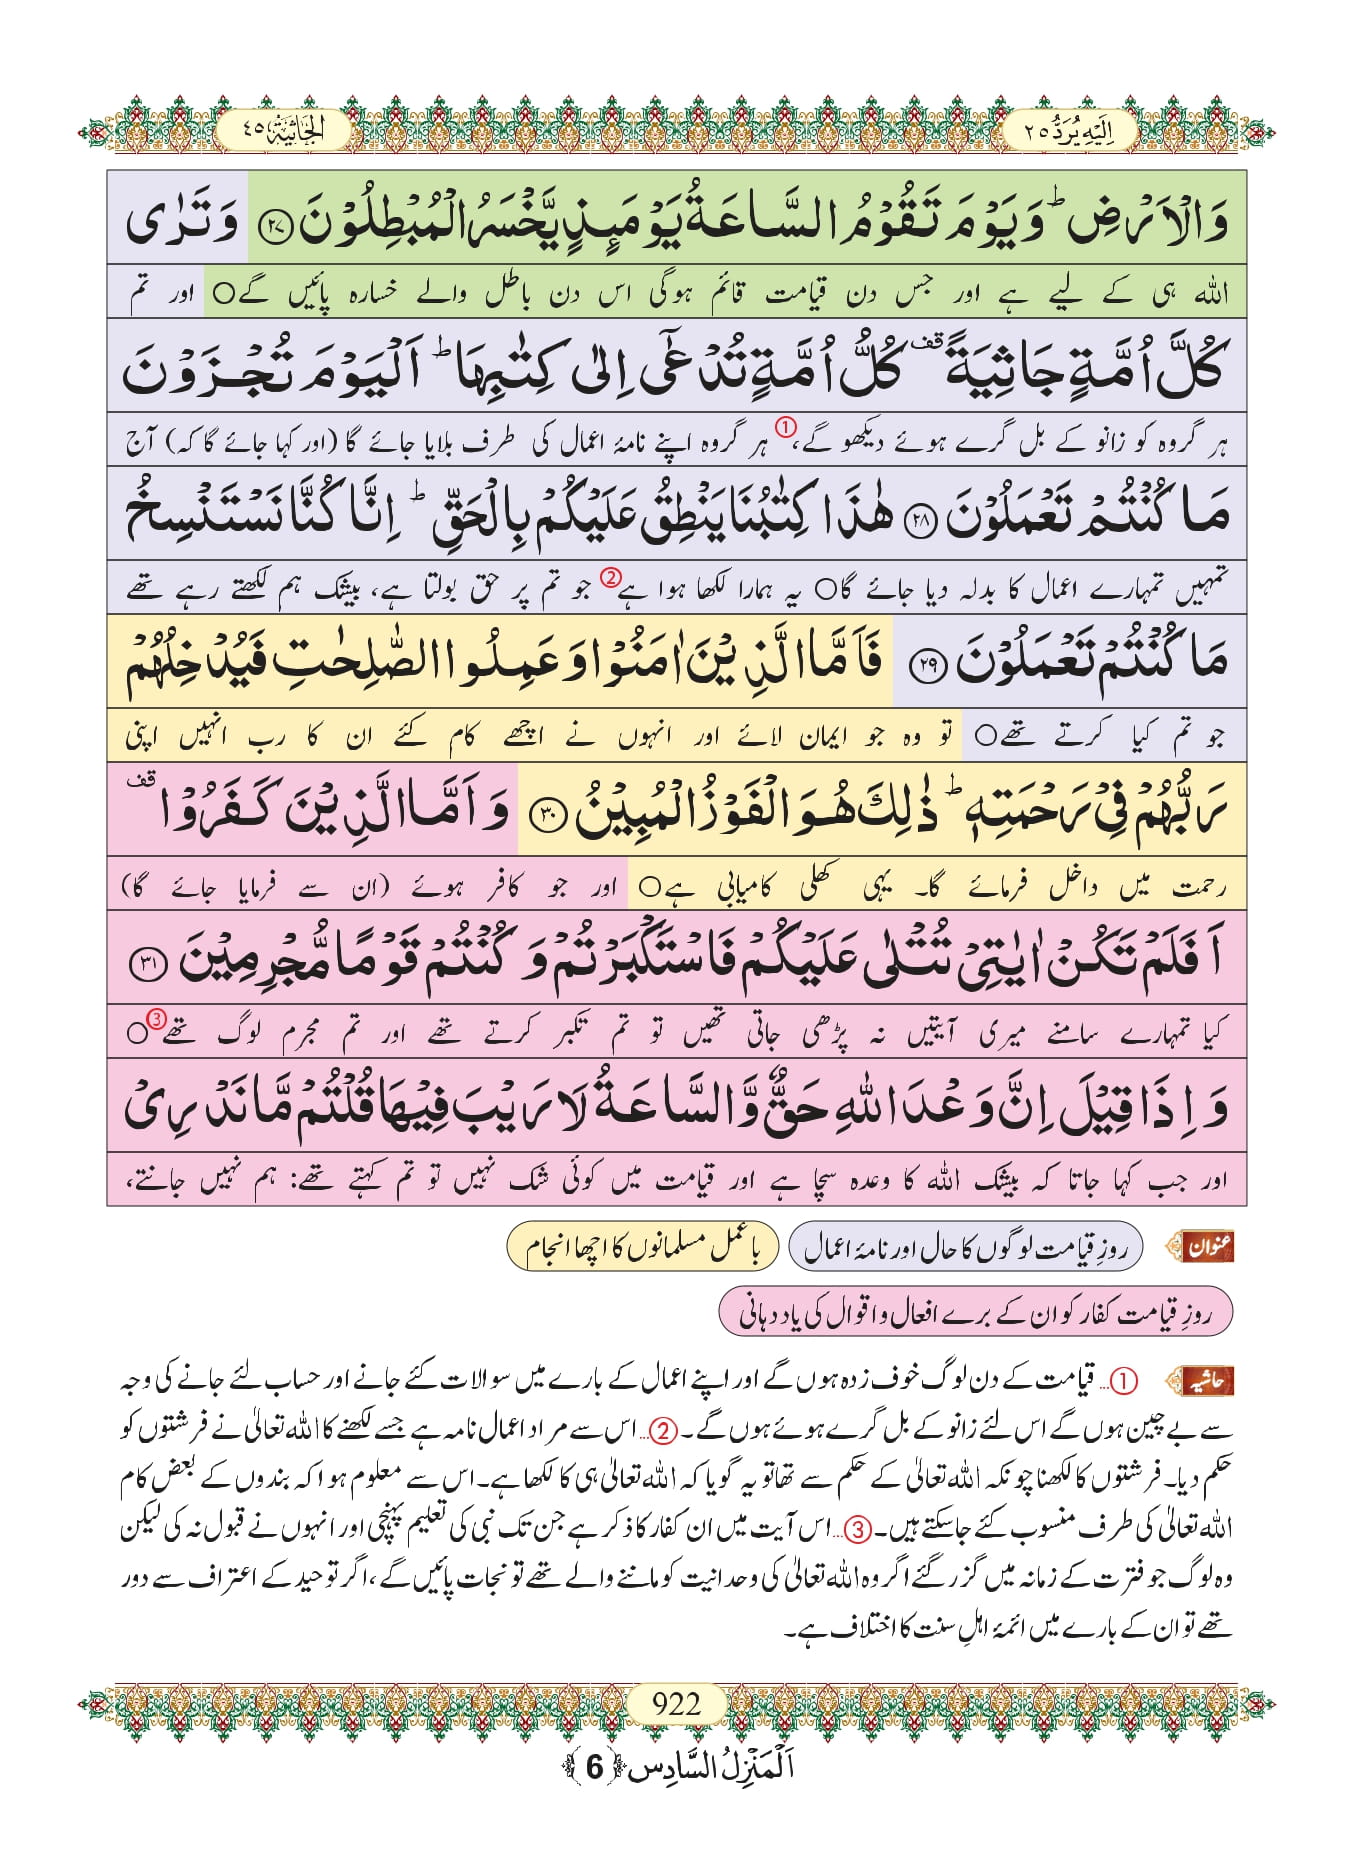 اِلَیْهِ یُرَدُّ ۲۵
الجَاثِیَة ۴۵
وَ الْاَرْضِؕ وَ یَوْمَ تَقُوْمُ السَّاعَةُ یَوْمَىٕذٍ یَّخْسَرُ الْمُبْطِلُوْنَ ﴿۲۷﴾ وَ تَرٰى
اللہ ہی کے لیے ہے اور جس دن قیامت قائم ہوگی اس دن باطل والے خسارہ پائیں گے○ اور تم
كُلَّ اُمَّةٍ جَاثِیَةً۫ قف كُلُّ اُمَّةٍ تُدْعٰۤى اِلٰى كِتٰبِهَاؕ اَلْیَوْمَ تُجْزَوْنَ
ہر گروہ کو زانو کے بل گرے ہوئے دیکھو گے،① ہر گروہ اپنے نامۂ اعمال کی طرف بلایا جائے گا (اور کہا جائے گا کہ) آج
مَا كُنْتُمْ تَعْمَلُوْنَ ﴿۲۸﴾ هٰذَا كِتٰبُنَا یَنْطِقُ عَلَیْكُمْ بِالْحَقِّؕ اِنَّا كُنَّا نَسْتَنْسِخُ
تمہیں تمہارے اعمال کا بدلہ دیا جائے گا○ یہ ہمارا لکھا ہوا ہے② جو تم پر حق بولتا ہے، بیشک ہم لکھتے رہے تھے
مَا كُنْتُمْ تَعْمَلُوْنَ ﴿۲۹﴾ فَاَمَّا الَّذِیْنَ اٰمَنُوْا وَ عَمِلُوا الصّٰلِحٰتِ فَیُدْخِلُهُمْ
جو تم کیا کرتے تھے○ تو وہ جو ایمان لائے اور انہوں نے اچھے کام کئے ان کا رب انہیں اپنی
رَبُّهُمْ فِیْ رَحْمَتِهٖؕ ذٰلِكَ هُوَ الْفَوْزُ الْمُبِیْنُ ﴿۳۰﴾ وَ اَمَّا الَّذِیْنَ كَفَرُوْا قف
رحمت میں داخل فرمائے گا۔ یہی کھلی کامیابی ہے○ اور جو کافر ہوئے (ان سے فرمایا جائے گا)
اَفَلَمْ تَكُنْ اٰیٰتِیْ تُتْلٰى عَلَیْكُمْ فَاسْتَكْبَرْتُمْ وَ كُنْتُمْ قَوْمًا مُّجْرِمِیْنَ ﴿۳۱﴾
کیا تمہارے سامنے میری آیتیں نہ پڑھی جاتی تھیں تو تم تکبر کرتے تھے اور تم مجرم لوگ تھے③○
وَ اِذَا قِیْلَ اِنَّ وَعْدَ اللّٰهِ حَقٌّ وَّ السَّاعَةُ لَا رَیْبَ فِیْهَا قُلْتُمْ مَّا نَدْرِیْ
اور جب کہا جاتا کہ بیشک اللہ کا وعدہ سچا ہے اور قیامت میں کوئی شک نہیں تو تم کہتے تھے: ہم نہیں جانتے،
عنوان روزِ قیامت لوگوں کا حال اور نامۂ اعمال باعمل مسلمانوں کا اچھا انجام
روزِ قیامت کفار کو ان کے برے افعال و اقوال کی یاد دہانی
حاشیہ ①... قیامت کے دن لوگ خوف زدہ ہوں گے اور اپنے اعمال کے بارے میں سوالات کئے جانے اور حساب لئے جانے کی وجہ
سے بے چین ہوں گے اس لئے زانو کے بل گرے ہوئے ہوں گے۔ ②... اس سے مراد اعمال نامہ ہے جسے لکھنے کا اللہ تعالیٰ نے فرشتوں کو
حکم دیا۔ فرشتوں کا لکھنا چونکہ اللہ تعالیٰ کے حکم سے تھا تو یہ گویا کہ اللہ تعالیٰ ہی کا لکھا ہے۔ اس سے معلوم ہوا کہ بندوں کے بعض کام
اللہ تعالیٰ کی طرف منسوب کئے جاسکتے ہیں۔ ③... اس آیت میں ان کفار کا ذکر ہے جن تک نبی کی تعلیم پہنچی اور انہوں نے قبول نہ کی لیکن
وہ لوگ جو فترت کے زمانہ میں گزر گئے اگر وہ اللہ تعالیٰ کی وحدانیت کو ماننے والے تھے تو نجات پائیں گے، اگر توحید کے اعتراف سے دور
تھے تو ان کے بارے میں ائمۂ اہلِ سنت کا اختلاف ہے۔
922
اَلْمَنْزِلُ السَّادِس ﴿6﴾